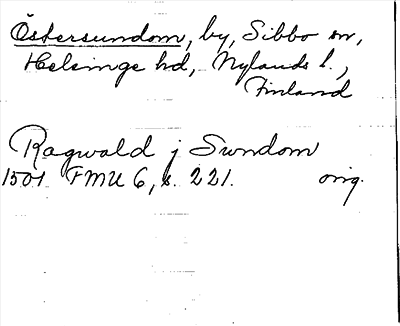 Östersundom, by, Sibbo sn,
Helsinge hd, Nylands l.,
Finland
Ragwald j Sundom
1501 FMU 6, s. 221. orig.